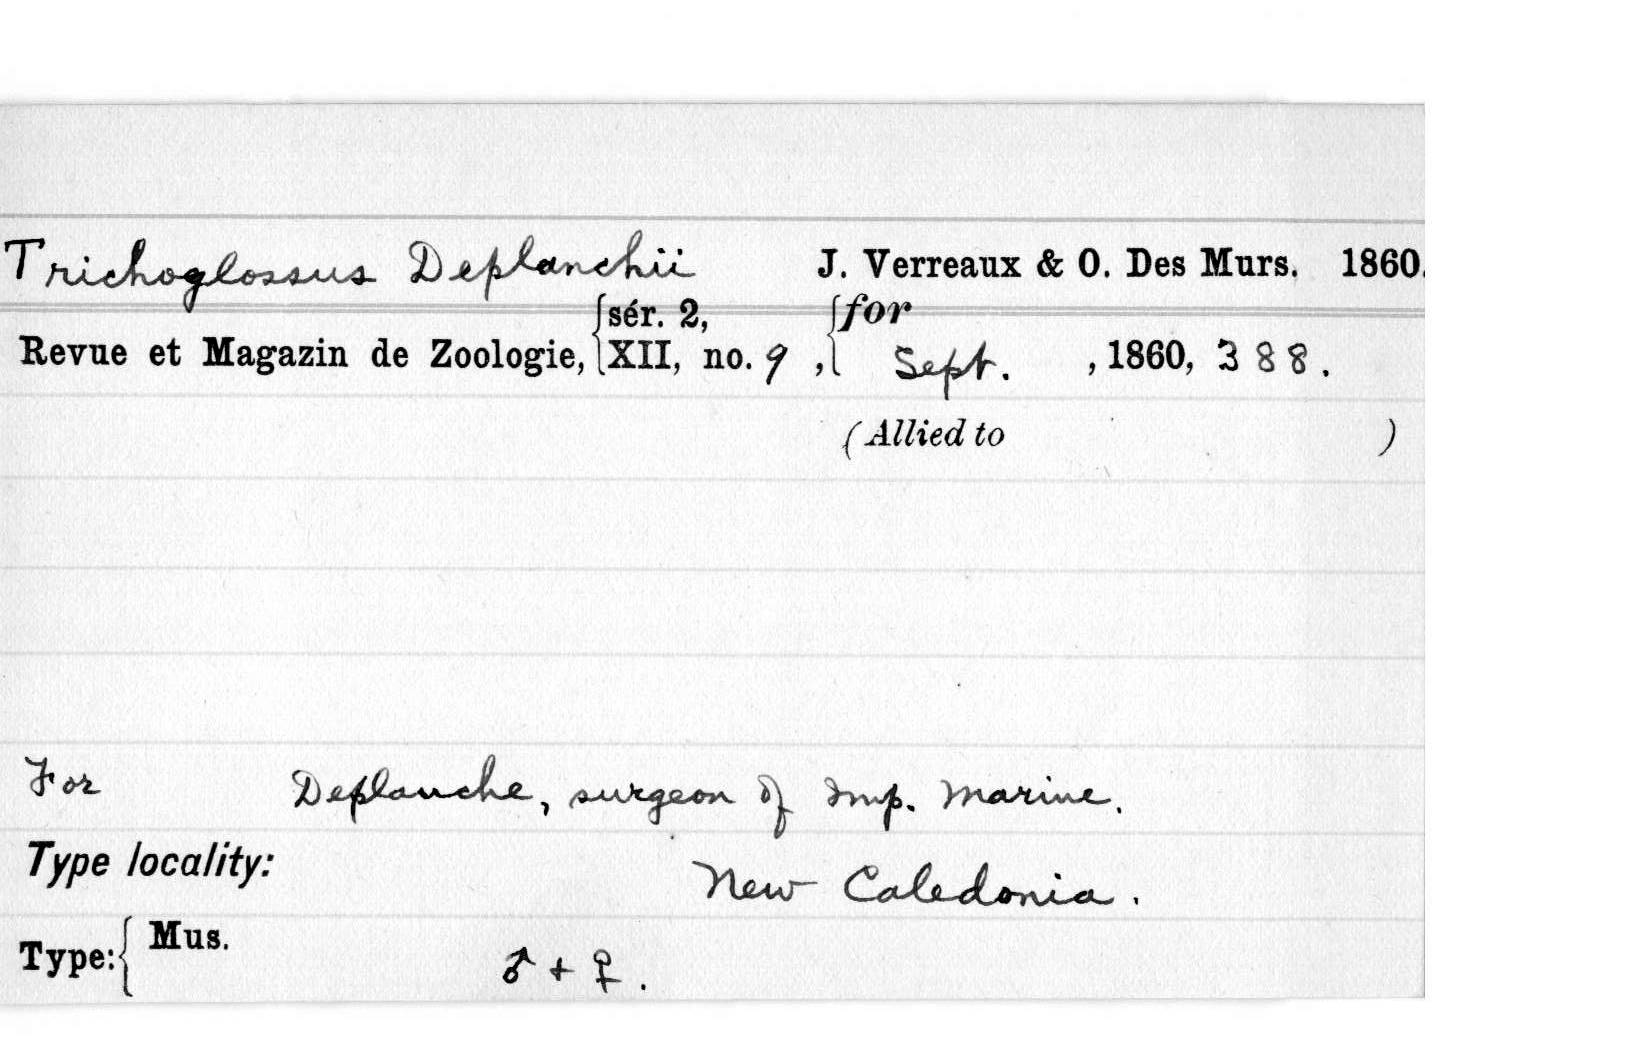 Trichoglossus Deplanchii J. Verreaux & O. Des Murs. 1860.
Revue et Magazin de Zoologie, {sér. 2, XII, no. 9 , {for Sept. , 1860, 388.
(Allied to )
For Deplanche, surgeon of Imp. Marine.
Type locality: New Caledonia.
Type: { Mus. ♂ + ♀.